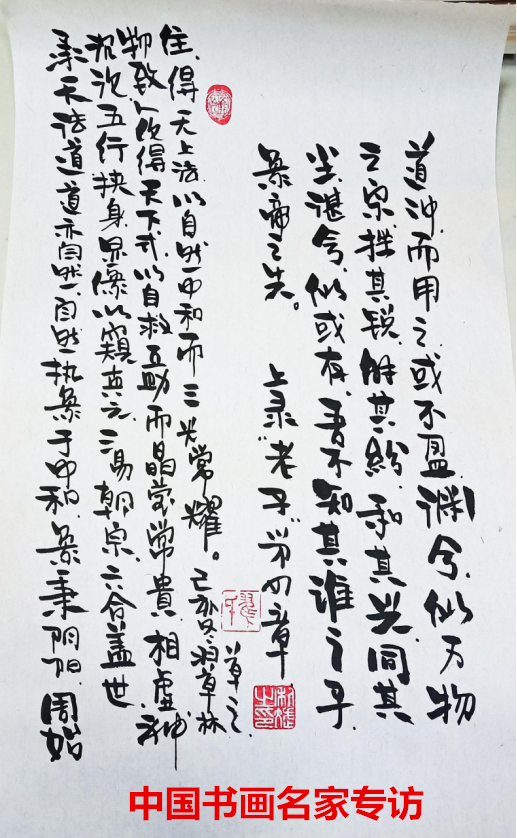 道冲而用之或不盈渊兮似万物
之宗挫其锐解其紛和其光同其
尘湛兮似或存吾不知其谁之子
象帝之先。 上录“老子”第四章
象天法道道亦自然自然执象于中和象秉阴阳周始
次五行挟身 像以窥真元三易朝宗六合盖世
物致人 得天下式以自救互助而晶莹常貴相虚神
住得天上法以自然中和而三光常耀。己亥冬 草林
草之
中国书画名家专访